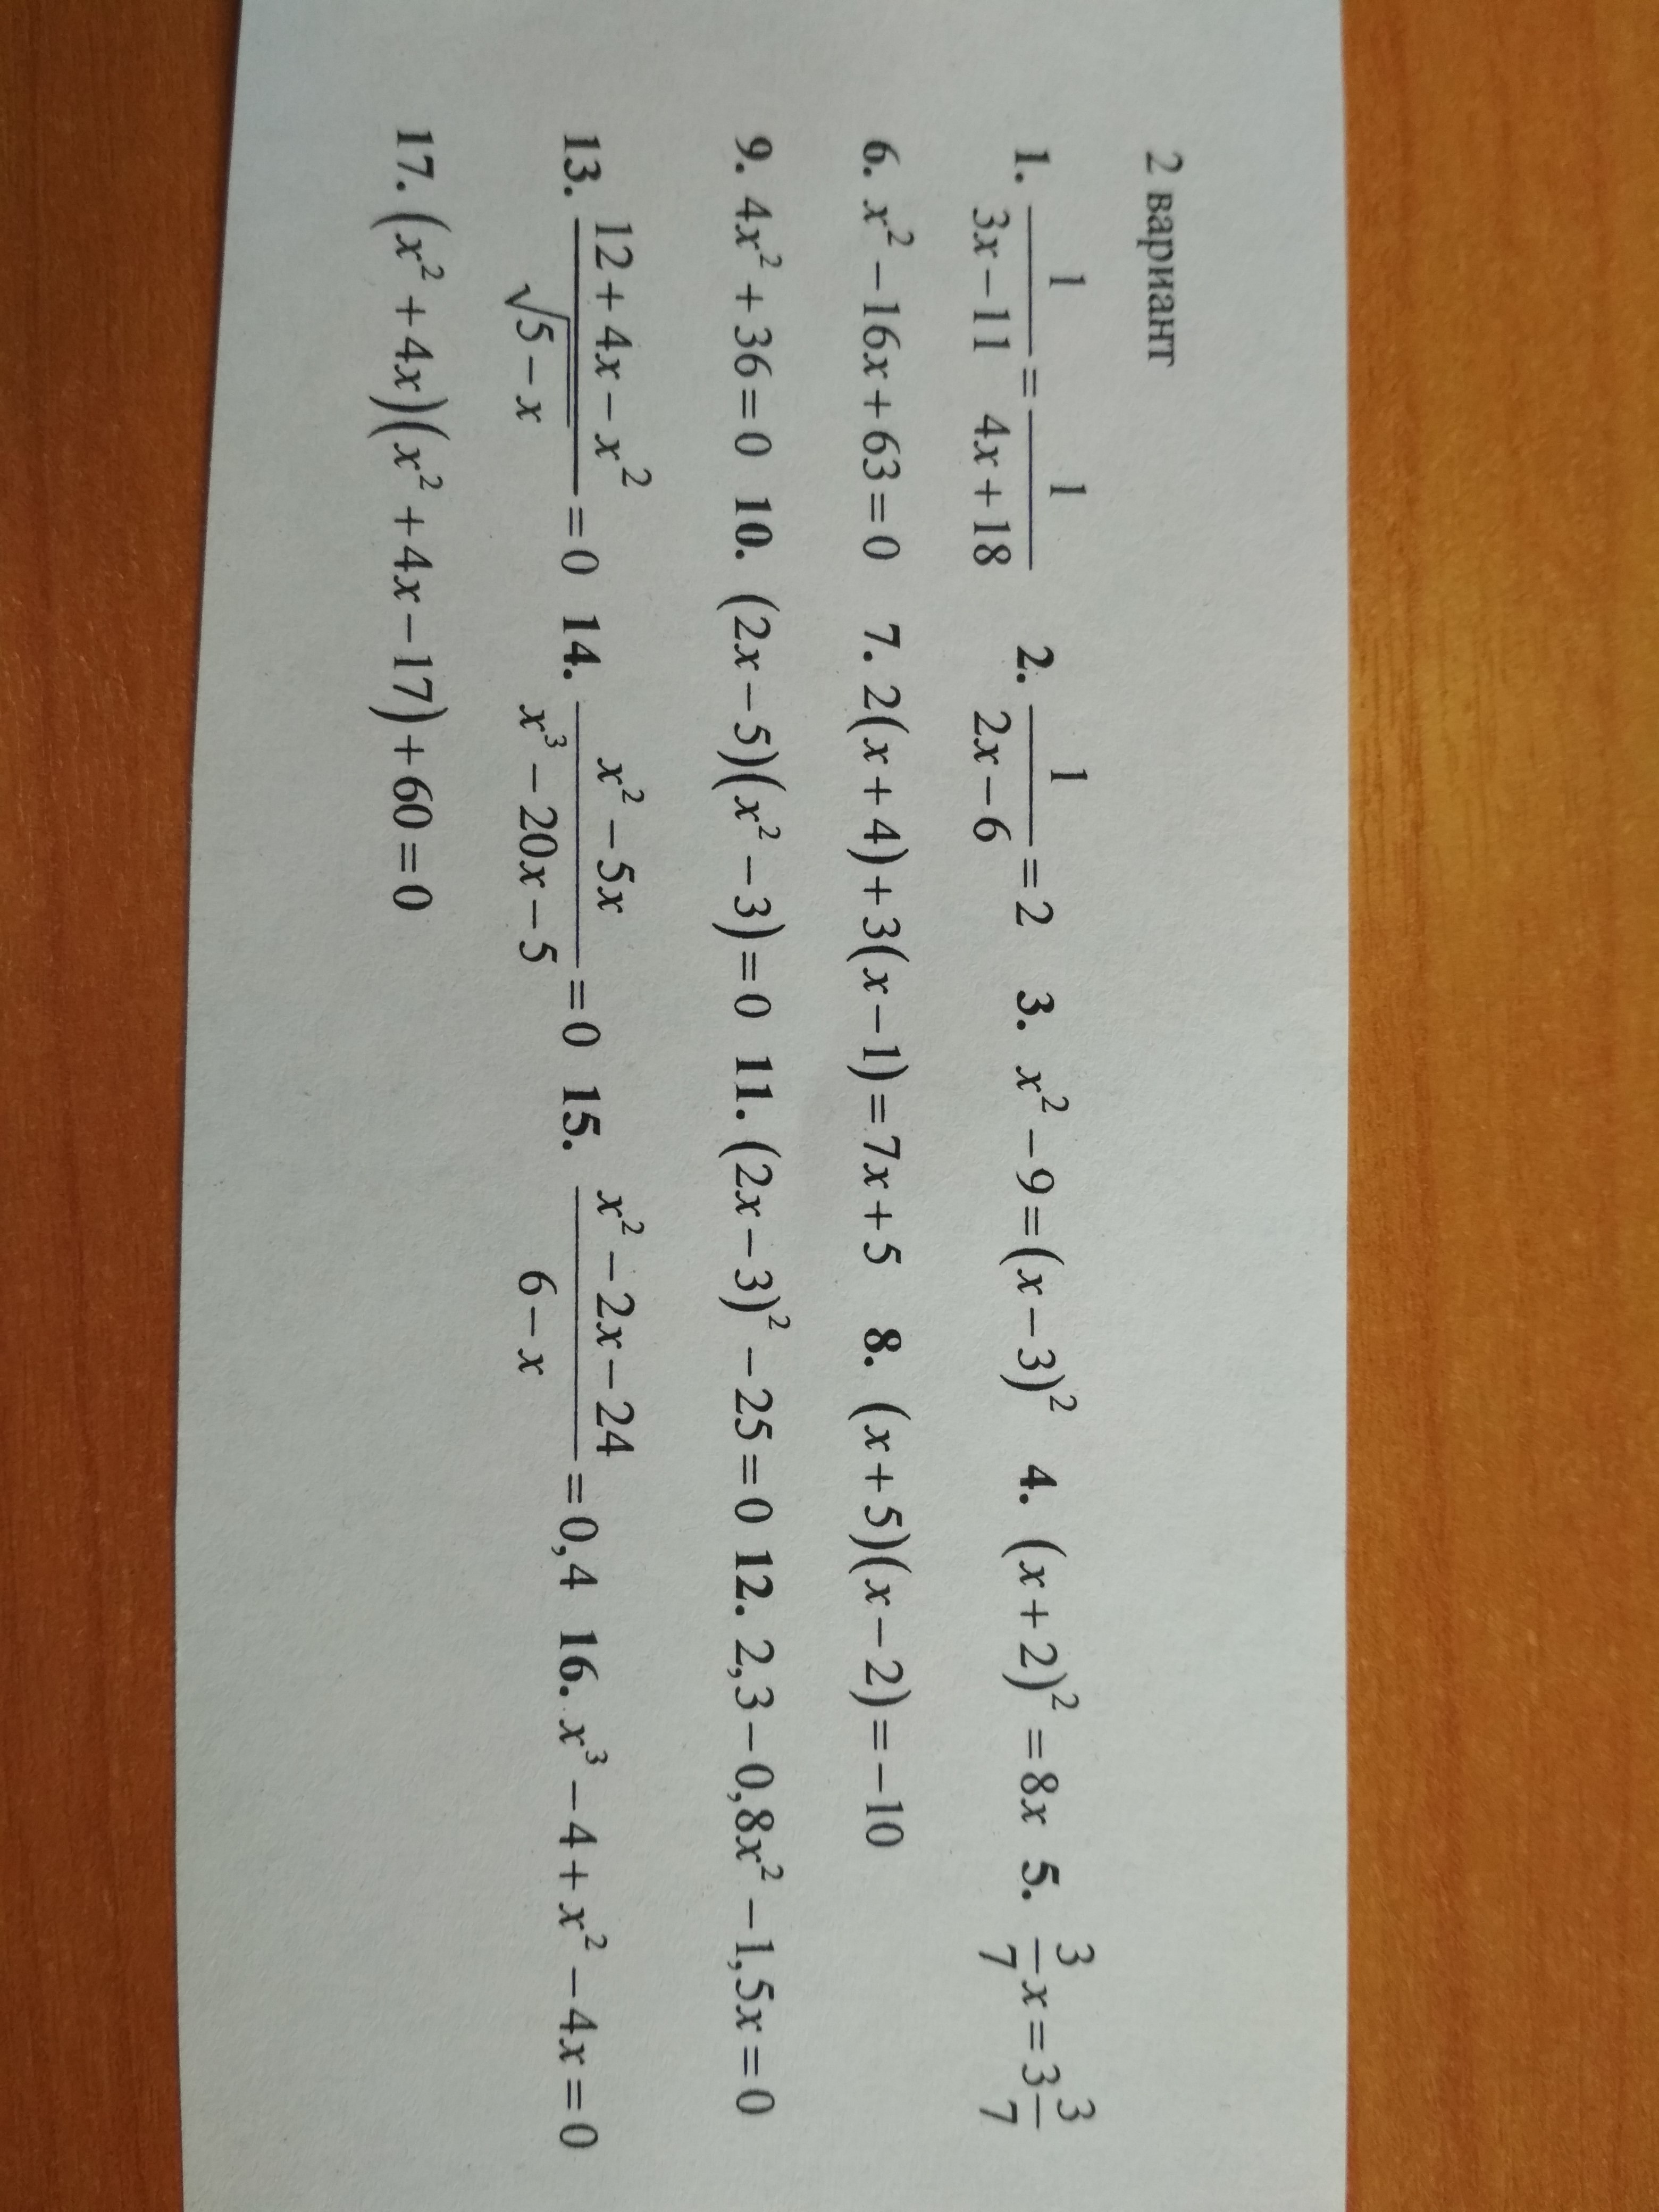 2 вариант
1. \frac{1}{3x-11} = \frac{1}{4x+18} 2. \frac{1}{2x-6} = 2 3. x^2-9=(x-3)^2 4. (x+2)^2=8x 5. \frac{3}{7}x=3\frac{3}{7}
6. x^2-16x+63=0 7. 2(x+4)+3(x-1)=7x+5 8. (x+5)(x-2)=-10
9. 4x^2+36=0 10. (2x-5)(x^2-3)=0 11. (2x-3)^2-25=0 12. 2,3-0,8x^2-1,5x=0
13. \frac{12+4x-x^2}{\sqrt{5-x}}=0 14. \frac{x^2-5x}{x^3-20x-5}=0 15. \frac{x^2-2x-24}{6-x}=0,4 16. x^3-4+x^2-4x=0
17. (x^2+4x)(x^2+4x-17)+60=0